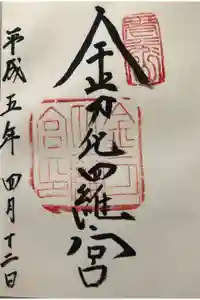 金刀比羅宮
平成五年 四月十二日